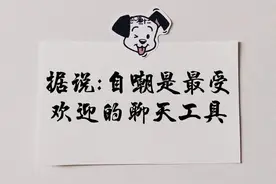 据说:自嘲是最受
欢迎的聊天工具